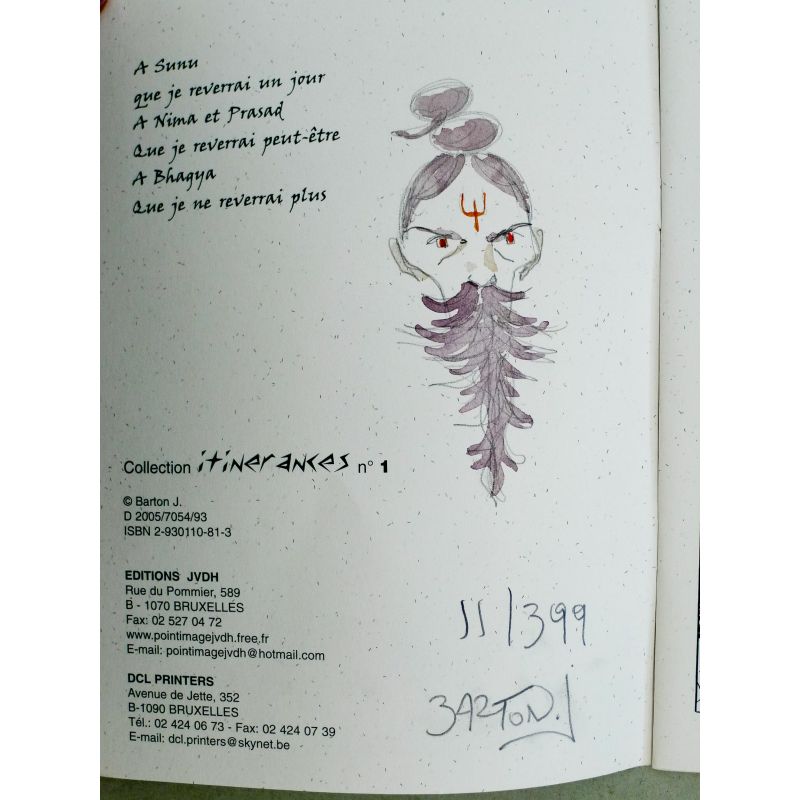 A Sunu
que je reverrai un jour
A Nima et Prasad
Que je reverrai peut-être
A Bhagya
Que je ne reverrai plus
Collection itinerances n° 1
© Barton J.
D 2005/7054/93
ISBN 2-930110-81-3
EDITIONS JVDH
Rue du Pommier, 589
B - 1070 BRUXELLES
Fax: 02 527 04 72
www.pointimagejvdh.free.fr
E-mail: pointimagejvdh@hotmail.com
DCL PRINTERS
Avenue de Jette, 352
B-1090 BRUXELLES
Tél.: 02 424 06 73 - Fax: 02 424 07 39
E-mail: dcl.printers@skynet.be
11/399
BARTON.J